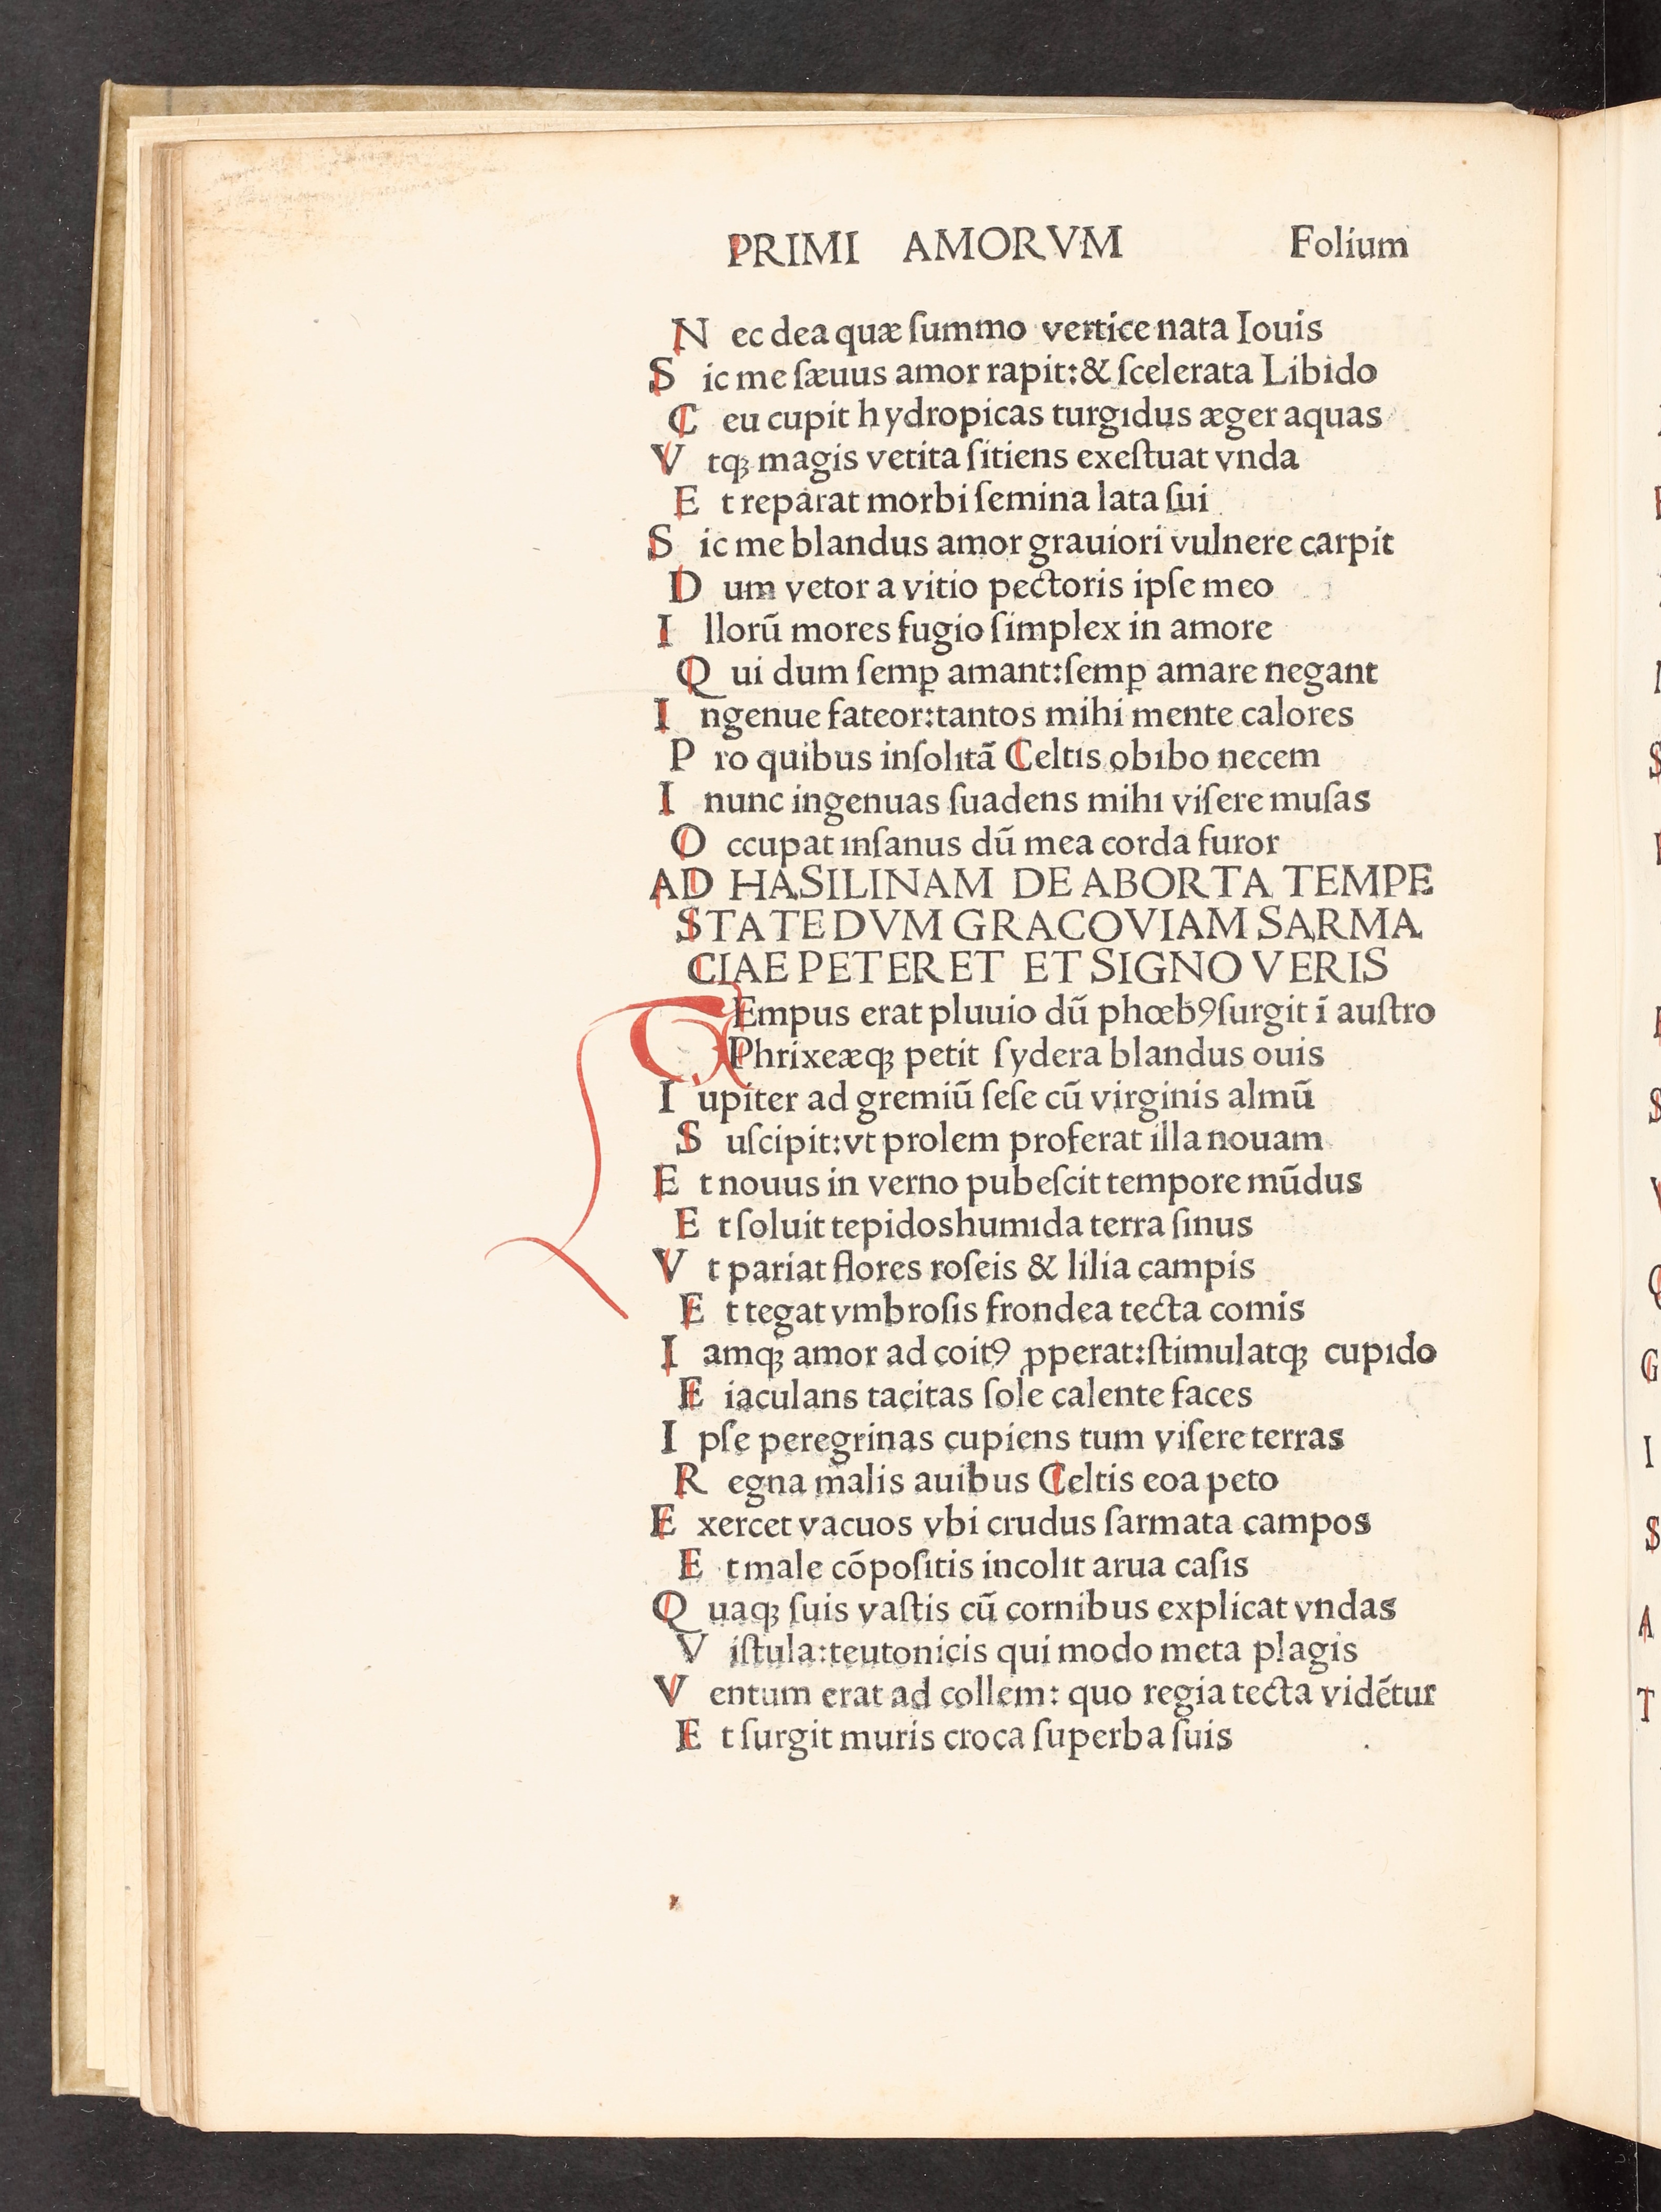 PRIMI AMORVM Folium
N ec dea quæ ſummo vertice nata Iouis
S ic me ſæuus amor rapit:& ſcelerata Libido
C eu cupit hydropicas turgıdus æger aquas
V tqꝫ magis vetita ſitiens exeſtuat vnda
E t reparat morbi ſemina lata ſui
S ic me blandus amor grauiori vulnere carpit
D um vetor a vitio pectoris ipſe meo
I llorū mores fugio ſimplex in amore
Q ui dum ſemꝑ amant:ſemꝑ amare negant
I ngenue fateor:tantos mihi mente calores
P ro quibus inſolıtā Celtıs obıbo necem
I nunc ingenuas ſuadens mihı viſere muſas
O ccupat ınſanus dū mea corda furor
AD HASILINAM DE ABORTA TEMPE
STATE DVM GRACOVIAM SARMA
CIAE PETERET ET SIGNO VERIS
TEmpus erat pluuio dū phœbꝯ ſurgit ī auſtro
Phrixeæqꝫ petit ſydera blandus ouis
I upiter ad gremiū ſeſe cū virginis almū
S uſcipit:vt prolem proferat illa nouam
E t nouus in verno pubeſcit tempore mūdus
E t ſoluit tepidos humıda terra ſınus
V t pariat flores roſeis & lilia campis
E t tegat vmbroſıs frondea tecta comis
I amqꝫ amor ad coitꝯ ꝓperat:ſtimulatqꝫ cupıdo
E iaculans tacitas ſole calente faces
I pſe peregrinas cupiens tum viſere terras
R egna malis auibus Celtis eoa peto
E xercet vacuos vbi crudus ſarmata campos
E t male cōpoſıtis incolıt arua caſıs
Q uaqꝫ ſuis vaſtis cū cornibus explicat vndas
V iſtula:teutonicis qui modo meta plagis
V entum erat ad collem: quo regia tecta vidētur
E t ſurgit muris croca ſuperba ſuis